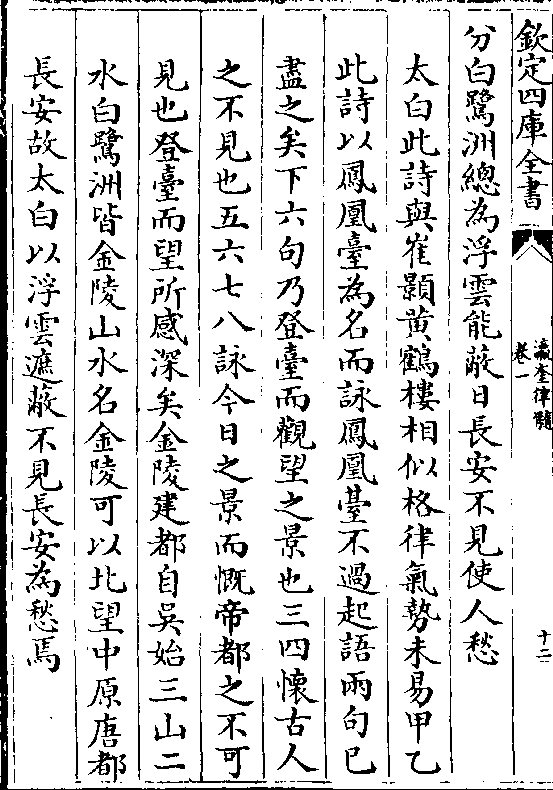 欽定四庫全書
瀛奎律髓
卷一
十二
分白鷺洲總為浮雲能蔽日長安不見使人愁
太白此詩與崔顥黃鶴樓相似格律氣勢未易甲乙
此詩以鳳凰臺為名而詠鳳凰臺不過起語兩句已
盡之矣下六句乃登臺而觀望之景也三四懷古人
之不見也五六七八詠今日之景而慨帝都之不可
見也登臺而望所感深矣金陵建都自吳始三山二
水白鷺洲皆金陵山水名金陵可以北望中原唐都
長安故太白以浮雲遮蔽不見長安為愁焉